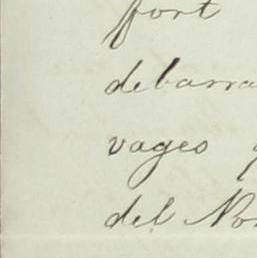 fort
debarra
vages
del No